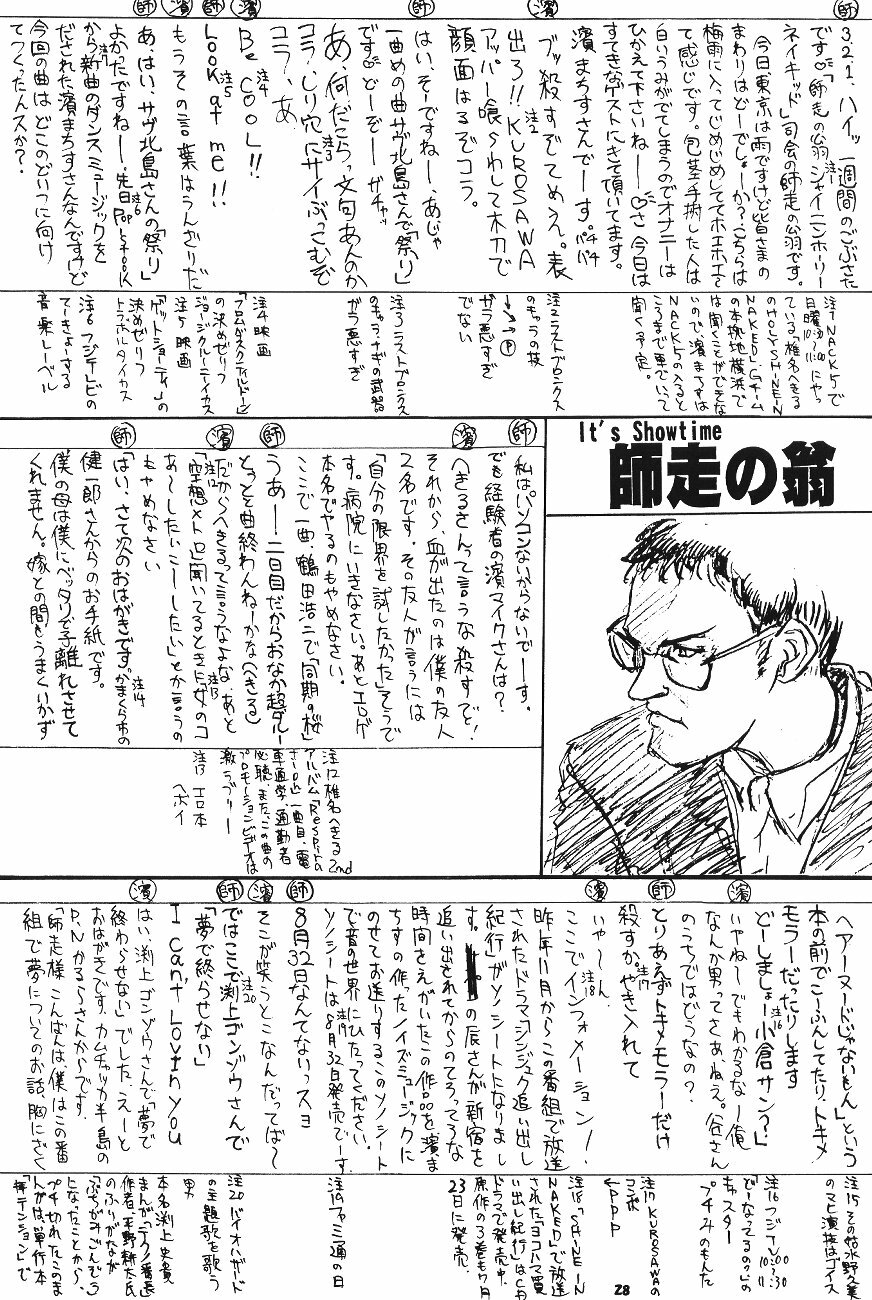 師
3 2 1、ハイッ 一週間のごぶさた
です♡「師走の翁 シャイニンホーリー
注1
ネイキッド」司会の師走の翁です。
今日東京は雨ですけど皆さまの
まわりはどーでしょーか?こちらは
梅雨に入ってじめじめしててホエホエ〜
て感じです。包茎手術した人は
白いうみがでてしまうのでオナニーは
ひかえて下さいねー♡さ今日は
すてきなゲストにきて頂いてます。
濱まちすさんでーす。パチパチ
濱
ブッ殺すぞてめえ。表
出ろ!!KUROSAWA
注2
アッパー喰らわして木刀で
顔面はるぞコラ。
師
はい、そーですねー、あじゃ
一曲めの曲サヴ北島さんで「祭り」
です♡どーぞー ガチャッ
濱
あ、何だこらっ文句あんのか
コラ、しり穴にサイぶっこむぞ
注3
コラ、あ
師
Be COOL!!
注4
濱
Look at me!!
注5
もうその言葉はうんざりだ
師
あ、はい、サヴ北島さんの「祭り」
よかったですねー。先日Pop Stock
注6
から新曲のダンスミュージックを
だされた濱まちすさんなんですけど
今回の曲はどこのどいつに向け
てつくったんスか?
注1 NACK5で
日曜
ている、椎名へきる
のHOLY SHINE IN
NAKED。Gチーム
の本拠地横浜で
は聞くことができな
いので、濱まちすは
NACK5の入ると
ころまで車でいって
聞く予定。
注2 ラストブロンクス
のキャラの技
↓↘→Ⓟ
ガラ悪すぎ
でない
注3 ラストブロンクス
のキャラナギの武器
ガラ悪すぎ
注4 映画
「フロム・ダスク・ティル・ドーン」
の決めゼリフ
ジョージ・クルーニーイカス
注5 映画
「ゲット・ショーティ」の
決めゼリフ
トラボルタイカス
注6 フジテレビの
てーきょーする
音楽レーベル
It's Showtime
師走の翁
師
私はパソコンないからないでーす。
でも経験者の濱マイクさんは?
濱
へきるさんって言うな殺すぞ!
それから、血が出たのは僕の友人
2名です。その友人が言うには
「自分の限界を試したかった」そうで
す。病院にいきなさい。あとエロゲ
本名でやるのもやめなさい。
ここで一曲、鶴田浩二で「同期の桜」
師
うあー!二日目だからおなか超ダルー
とっとと曲終わんねーかな(へきる)
濱
だからへきるって言うなよな。あと
「空想メトロ」聞いてるときに女のコ
注12
注13
あーしたいこーしたい」とか言うの
もやめなさい
師
「はい、さて次のおはがきです。かまくら市の
注14
健一郎さんからのお手紙です。
僕の母は僕にベッタリで子離れさせて
くれません。嫁との間もうまくいかず
注12 椎名へきる2nd
アルバム「Respirer」の
一曲目。電
車通学、通勤者
必聴。また、この曲の
プロモーションビデオは
激ラブリー
注13 エロ本
へボイ
ヘアーヌードじゃないもん」という
本の前でこーふんしてたり、トキメ
モラーだったりします
どーしましょー小倉サン?」
注16
濱
いやねーでもわかるなー俺
なんか男ってさぁ、ねぇ。谷さん
のうちではどうなの?
師
とりあえずトキメモラーだけ
殺すか。やき入れて
注17
濱
いゃ〜ん
ここでインフォメーション!
昨年11月からこの番組で放送
されたドラマ「シンジュク追い出し
紀行」がソノシートになりまし
注18
す。の辰さんが新宿を
追い出されてからのてろってろな
時間をえがいたこの作品を濱ま
ちすの作ったノイズミュージックに
のせてお送りするこのソノシート
で音の世界にひたってください。
ソノシートは8月32日発売でーす
注19
師
8月32日なんてないっスよ
濱
そこが笑うとこなんだってば〜
師
ではここで渕上ゴンゾウさんで
注20
「夢で終らせない」
I can't Lovin you
濱
はい、渕上ゴンゾウさんで「夢で
終わらせない」でした。えーと
おはがきです、カムチャッカ半島の
P.N.かるらさんからです。
「師走様こんばんは僕はこの番
組で夢についてのお話、胸にざく
注15 その昔水野久美
のマヒ演技はゴイス
注16 フジテレビ
10:00〜11:30
「どーなってるの?!」の
キャスター
プチみのもんた
注17 KUROSAWAの
コンボ
←PPP
注18 「SHINE IN
NAKED」で放送
された「ヨコハマ買
い出し紀行」はCD
ドラマで発売中。
原作の3巻も7月
23日に発売。
注19 ファミ通の日
注20 バイオハザード
の主題歌を歌う
男
本名渕上史貴
まんが「テクノ番長」
作者・平野耕太氏
のふりがなが
「ふちがみごんぞう」
になったことから、
ブチ切れたこのま
んがは、単行本
「拝テンション」で
28